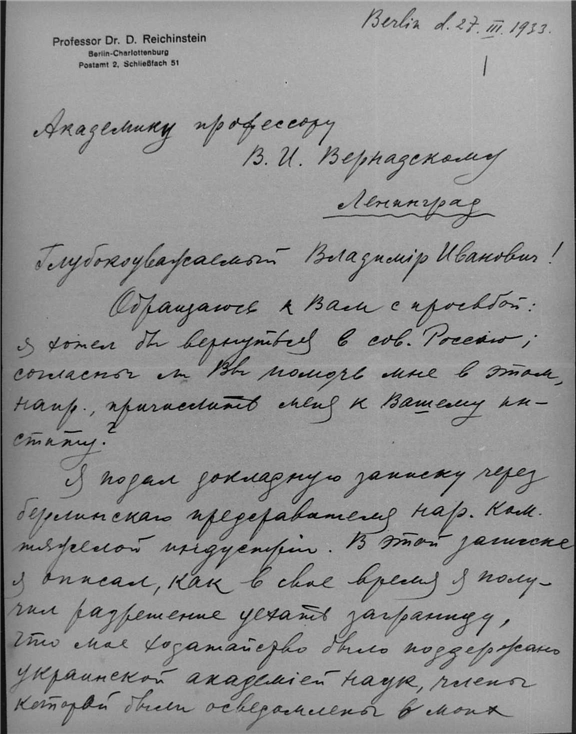 Professor Dr. D. Reichinstein
Berlin-Charlottenburg
Postamt 2, Schließfach 51
Berlin d. 27. III. 1933.
Академику профессору
В. И. Вернадскому
Ленинград
Глубокоуважаемый Владимір Иванович!
Обращаюсь к Вам с просьбой:
я хотел бы вернуться в сов. Россию;
согласны ли Вы помочь мне в этом,
напр., причислить меня к Вашему ин-
ституту?
Я подал докладную записку через
берлинскаго представителя нар. ком.
тяжелой индустріи. В этой записке
я описал, как в свое время я полу-
чил разрешение уехать заграницу,
что мое ходатайство было поддержано
украинской академіей наук, члены
которой были осведомлены о моих